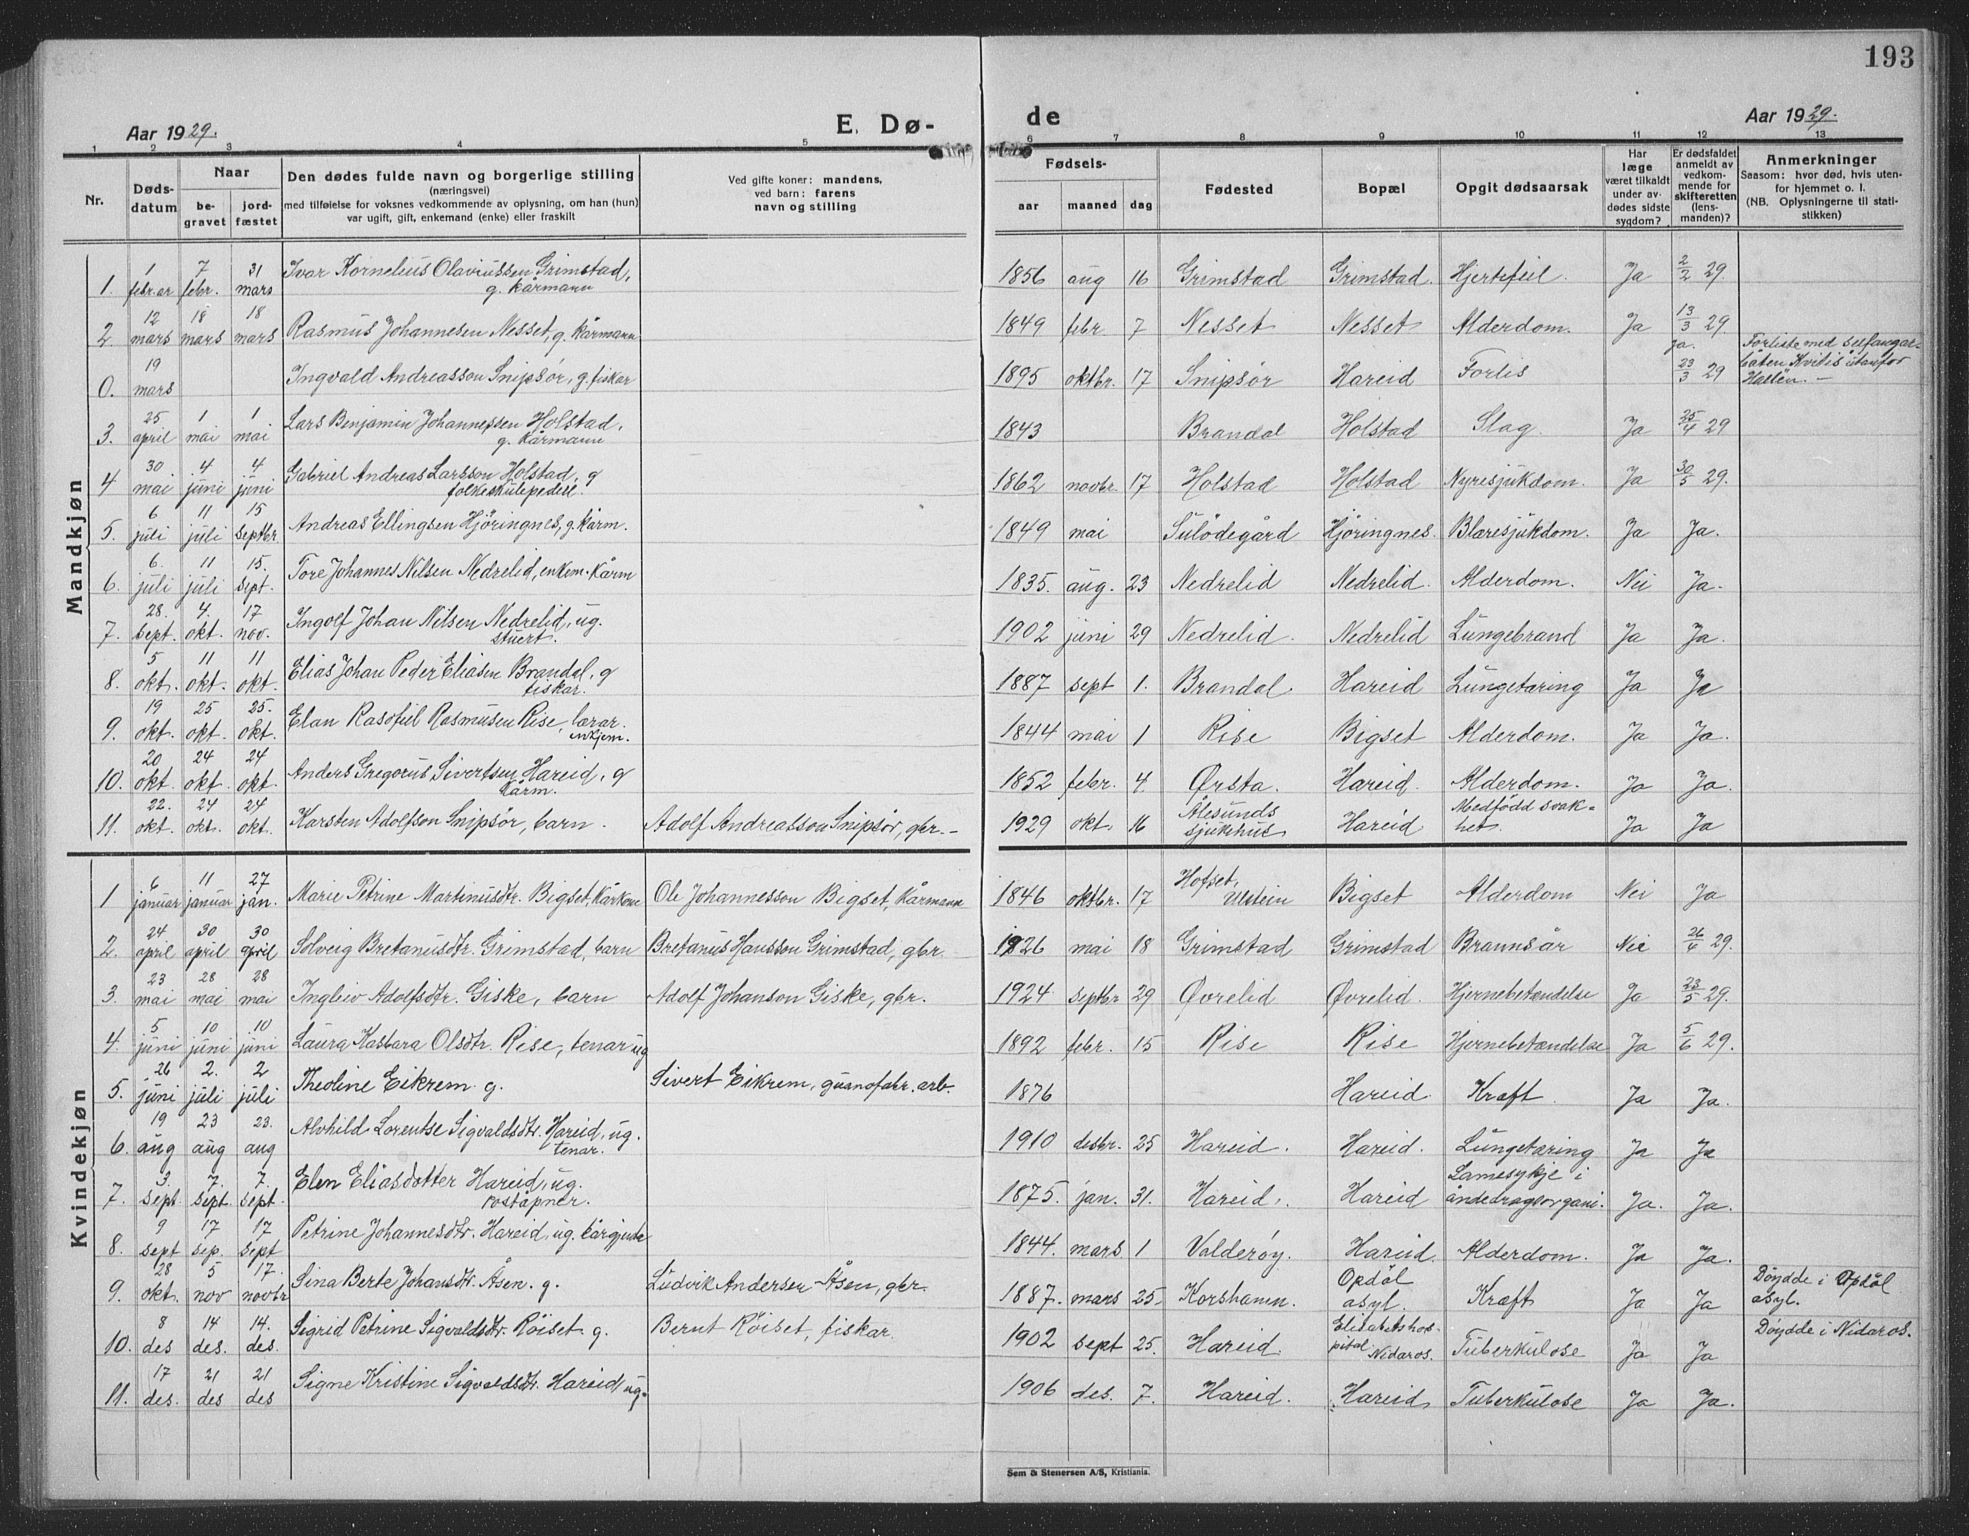 193
Aar 1929.
E. Dø-
de
Aar 1929.
1 2 3 4 5 6 7 8 9 10 11 12 13
Nr.
Døds-
datum
Naar
be-
gravet
jord-
fæstet
Den dødes fulde navn og borgerlige stilling
(næringsvei)
med tilføielse for voksnes vedkommende av oplysning, om han (hun)
var ugift, gift, enkemand (enke) eller fraskilt
Ved gifte koner: mandens,
ved barn: farens
navn og stilling
Fødsels-
aar maaned dag
Fødested
Bopæl
Opgit dødsaarsak
Har
læge
været tilkaldt
under av-
dødes sidste
sygdom?
Er dødsfaldet
anmeldt av
vedkom-
mende for
skifteretten
(lens-
manden)?
Anmerkninger
Saasom: hvor død, hvis uten-
for hjemmet o. l.
(NB. Oplysningerne til stati-
stikken)
Mandkjøn
1. 1 febr.ar 7 febr. 31 mars Ivar Kornelius Olaviussen Grimstad, g. kårmann 1856 aug 16 Grimstad Grimstad. Hjertefeil. Ja 2/2 29.
2. 12 mars 18 mars 18 mars Rasmus Johannesen Nesset, g. kårmann 1849 febr. 7 Nesset Nesset Alderdom. Ja 13/3 29.
0. 19 mars Ingvald Andreasson Snipsør, g. fiskar 1895 oktbr. 17 Snipsør Hareid Forlis ja. 23/3 29 Forliste med selfangar-
båten Kvitis utanfor
Halten. —
3. 25 april 1 mai 1 mai Lars Benjamin Johannessen Holstad, g. Kårmann 1843 Brandal Holstad Slag. Ja 25/4 29
4 30 mai 4 juni 4 juni Gabriel Andreas Larsson Holstad, g folkeskulepedell. 1862 novbr. 17 Holstad Holstad Nyresjukdom. Ja 30/5 29.
5. 6 juli 11 juli 15 septbr Andreas Ellingsen Hjøringnes, g. kårm. 1849 mai Sulødegård Hjøringnes. Blæresjukdom. Ja Ja.
6. 6. juli 11 juli 15. sept. Tore Johannes Nilsen Nedrelid, enkem. kårm 1835. aug. 23 Nedrelid Nedrelid. Alderdom. Nei Ja.
7. 28. sept. 4. okt. 17 nov. Ingolf Johan Nilsen Nedrelid, ug. stuert. 1902 juni 29 Nedrelid. Nedrelid Lungebrand Ja Ja.
8. 5 okt. 11 okt. 11 okt. Elias Johan Peder Eliasen Brandal, g fiskar. 1887 sept 1. Brandal. Hareid Lungetæring Ja Ja
9. 19 okt. 25 okt. 25. okt. Elan Rasofiel Rasmusen Rise, lærar. enkjem. 1844 mai 1 Rise Bigset Alderdom. Ja Ja.
10. 20 okt. 24 okt. 24 okt. Anders Gregorius Sivertsen Hareid, g kårm. 1852 febr. 4. Ørsta. Hareid. Alderdom. Ja Ja.
11. 22. okt. 24 okt. 24 okt. Karsten Adolfson Snipsør, barn. Adolf Andreasson Snipsør, gbr. — 1929 okt. 16 Ålesunds sjukhus Hareid Medfødd svak-
het. Ja Ja
Kvindekjøn
1 6 januar 11 januar 27 jan. Marie Petrine Martinusdtr. Bigset, kårkone Ole Johannesson Bigset, kårmann 1846 oktbr. 17 Hofset, Ulstein Bigset Alderdom Nei Ja
2. 24 april 30 april 30 april Solveig Bretanusdtr. Grimstad, barn Bretanus Hansson Grimstad, gbr. 1926 mai 18 Grimstad Grimstad Brannsår Nei 26/4 29.
3. 23 mai 28 mai 28 mai Ingbiv Adolfsdtr. Giske, barn Adolf Johanson Giske, gbr. 1924 septbr 29 Øvrelid Øvrelid. Hjernebetændelse Ja 23/5 29.
4. 5 juni 10 juni 10 juni Laura Kasbara Olsdtr. Rise, tenar ug 1892 febr. 15 Rise Rise Hjernebetændelse Ja 5/6 29.
5. 26 juni 2. juli 2 juli Theoline Eikrem g. Sivert Eikrem, guanofabr. arb. 1876 Hareid Kræft Ja Ja.
6. 19 aug 23 aug 23. aug Alvhild Lorentse Sigvaldsdtr. Hareid, ug. tenar. 1910 desbr. 25 Hareid. Hareid. Lungetæring Ja Ja
7. 3. sept. 7. sept. 7. sept. Elen Eliasdotter Hareid, ug. poståpner. 1875. jan. 31. Hareid. Hareid Lamesykje i åndedragsorgani. Ja. Ja.
8. 9 sept 17 sep. 17 sept Petrine Johannesdtr. Hareid, ug. kårgjente 1844. mars 1 Valderøy. Hareid. Alderdom. Ja Ja.
9. 28 okt. 5 nov 17. novbr Sina Berte Johansdtr. Åsen. g. Ludvik Andersen Åsen, gbr. 1887. mars 25. Korshamn. Opdøl asyl. Kræft Ja Ja Døydde i Opdøl
asyl.
10. 8 des 14 des. 14. des. Sigrid Petrine Sigvaldsdtr. Røiset g. Bernt Røiset, fiskar. 1902 sept 25. Hareid. Elisabethos-
pital Nidaros. Tuberkulose Ja Ja Døydde i Nidaros.
11. 17 des. 21 des 21 des Signe Kristine Sigvaldsdtr. Hareid, ug. 1906 des. 7. Hareid. Hareid Tuberkulose Ja Ja.
Sem & Stenersen A/S, Kristiania.